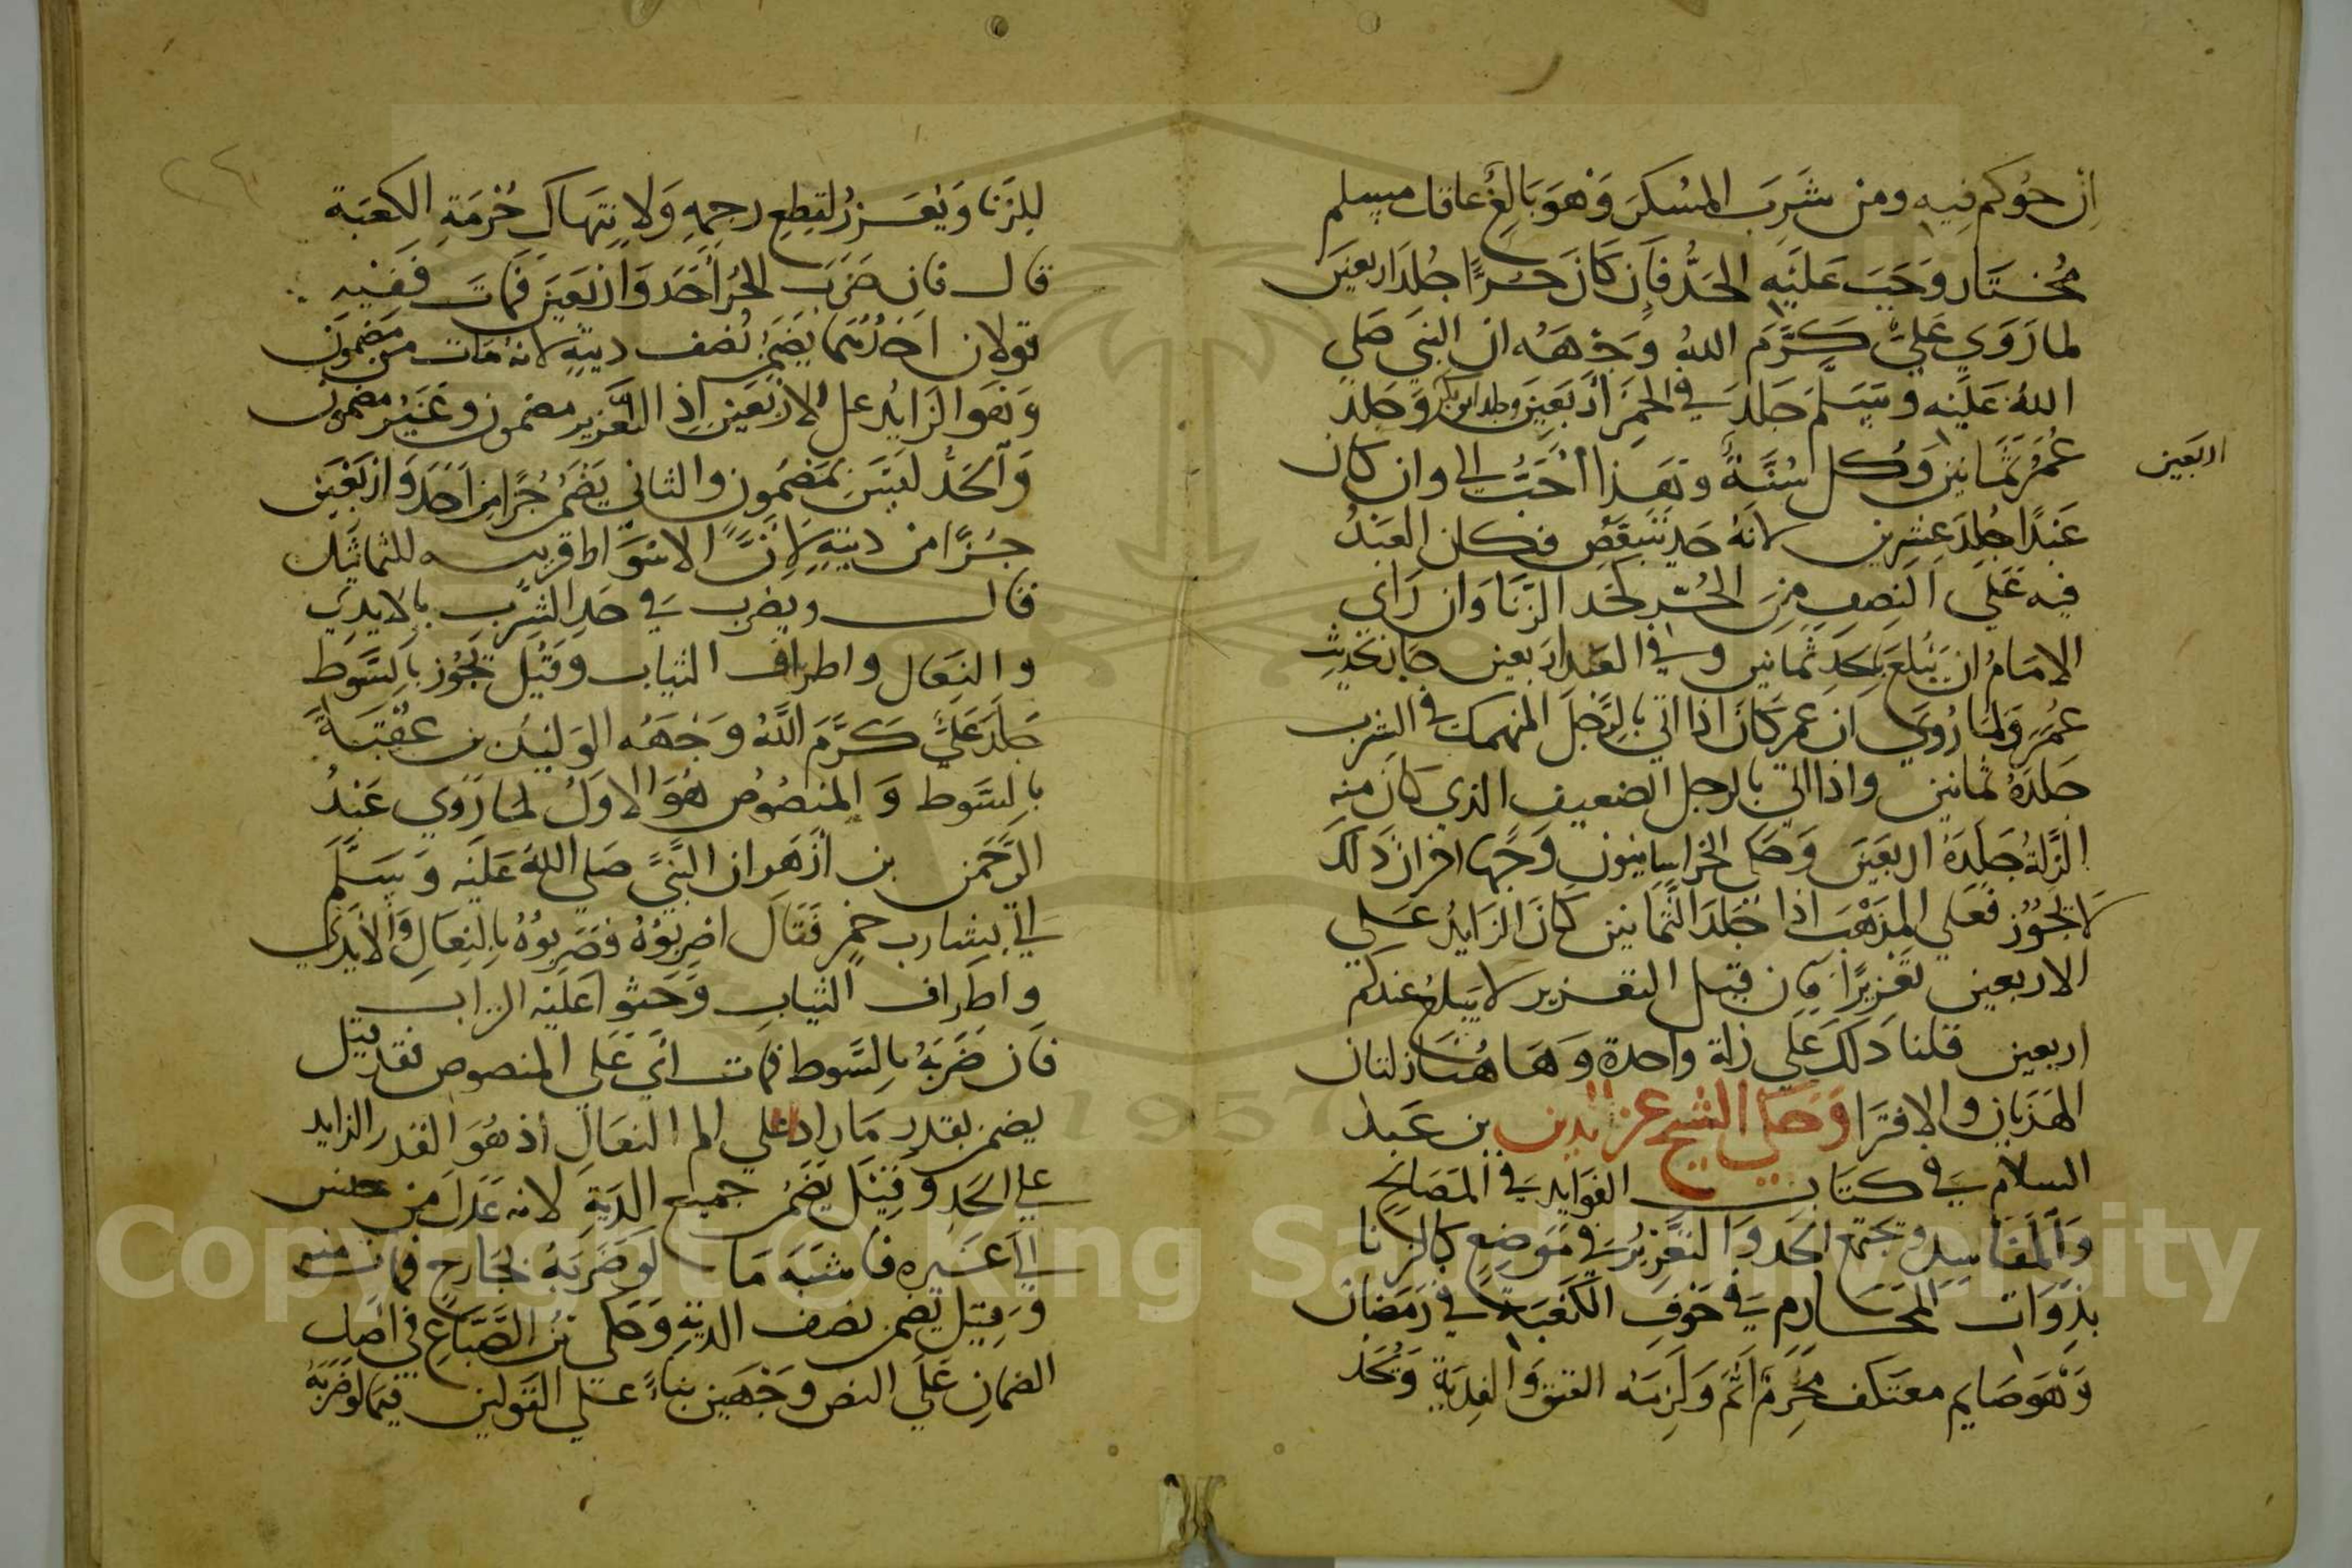 ان حوكم فيه ومن شَرِبَ المسْكرَ وَهوَ بَالِغٌ عاقل مسلم
مُختَار وَجَبَ عَلَيْهِ الحَدُّ فَإن كَانَ حُرًّا جُلدَ اربعين
لما رَوَي عَليٌّ كَرَّمَ اللهُ وَجْهَهُ ان النبي صَلي
اللهُ عَلَيْهِ وَسَلَّمَ جَلدَ في الخمرَ أرْبَعِينَ وجلد ابو بكر وَجَلدَ
اربَعين
عُمَرُ ثَمَانين وَكل سُنَّةٌ وَهَذا أحَبُّ الي وان كان
عَبْدًا جُلِدَ عشرين لانَهُ حَد يتبعَّض فكان العَبْدُ
فيه عَلَي النصفِ مِنَ الحُرّ كحَد الزنَا وَان رَاي
الامَامُ ان يَبْلغَ بالحَدِ ثمانين وفي العَبد اربعين جاز لحديث
عُمَر وَلمَا رُوِيَ ان عمر كَانَ اذا اتي بالرَّجلِ المنهمك في الشرب
جَلدَهُ ثمَانين واذا اتي بالرجل الضعيف الذي كان منه
الزلَّةُ جَلدَهُ اربعَينَ وَحكي الخراسانيون وَجهًا اخر ان ذَلكَ
لا يجُوُز فعَلي المذهب اذا جَلدَ الثمَانين كَانَ الزايدُ عَلي
الاربعين تعْزيرًا فان قيل التعزير لا يبلغ عندكم
اربعين قلنا ذلكَ عَلَي زلة واحدة وَهَا هُنَا زلتان
الهَذيان والافترَا وَحكي الشيخ عز الدين بن عَبد
السلام في كتَاب الفوايد في المصَالحِ
وَالمفَاسِد وتجتمع الحَد وَالتعْزيرُ في مَوضِع كالزنا
بذِوَات المحَارِم في جَوْفِ الكَعْبَة في رَمَضان
وَهوَ صَايم معتكف محرِمٌ أثمَ وَلزِمَهُ العتق وَالفِدْيَةِ وَيُحَد
للزنا وَيُعَزرُ لقطعِ رحمِهِ وَلانتِهَاكِ حُرْمَةِ الكعبَة
قال فان ضَرَبَ الحُرَّ أحَدَ وَارْبَعينَ فَمَاتَ فَفيْهِ
قولان احَدُهُمَا يَضْمَنُ نصْف ديتِهِ لانهُ مَات من مضمُون
وَهوَ الزَايدُ علي الاربَعين اذِ التعزير مضمون وغَيْر مضمون
وَالحَدُّ ليسَ بمَضمُون والثاني يَضْمَنُ جُزًا من احَدَ وَارْبَعَين
جُزًّا من ديتِهِ لأنَّ الاسْوَاط قريبه للتماثل
قال ويضرب في حَدِ الشربِ بالايدِي
والنِعَال واطراف الثياب وَقيْل يَجُوز بالسَّوط
جَلدَ عَليٌّ كَرَّمَ اللَّهُ وَجْهَهُ الوَليْدَ بن عُقْبَةَ
بالسَّوط وَالمنصُوصُ هُوَ الاولُ لما رَوَي عَبْدُ
الرَّحْمَن بن أزهَر ان النَّبيَّ صَلي اللهُ عَلَيْه وَسَلَّمَ
اتي بشارب خمرٍ فقَالَ اضربُوْهُ فضَربُوْهُ بالنِعَالِ وَالأيْدِي
واطراف الثيابِ وَحَثوا عَلَيْه التراب
فَان ضَرَبَهُ بالسَّوط فمات اي عَلي المنصوص فقد قيل
يضمن بقدر مَا زاد علي الم النعَالِ اذ هُوَ القدر الزايد
علي الحَدِ وَقِيْل يَضْمَنُ جميع الديَةِ لانه عَدَلَ من جنس
الي غَيْره فاشبَهَ مَا لَوْ ضَرَبَهُ بجَارح فمات منه
وَقِيْل يضمن نصف الديةِ وَحكي بنُ الصَّبَّاغِ في اصل
الضمان عَلي النص وجهَين بنَاءً علي القَوْلين فيمَا لو ضرَبَهُ